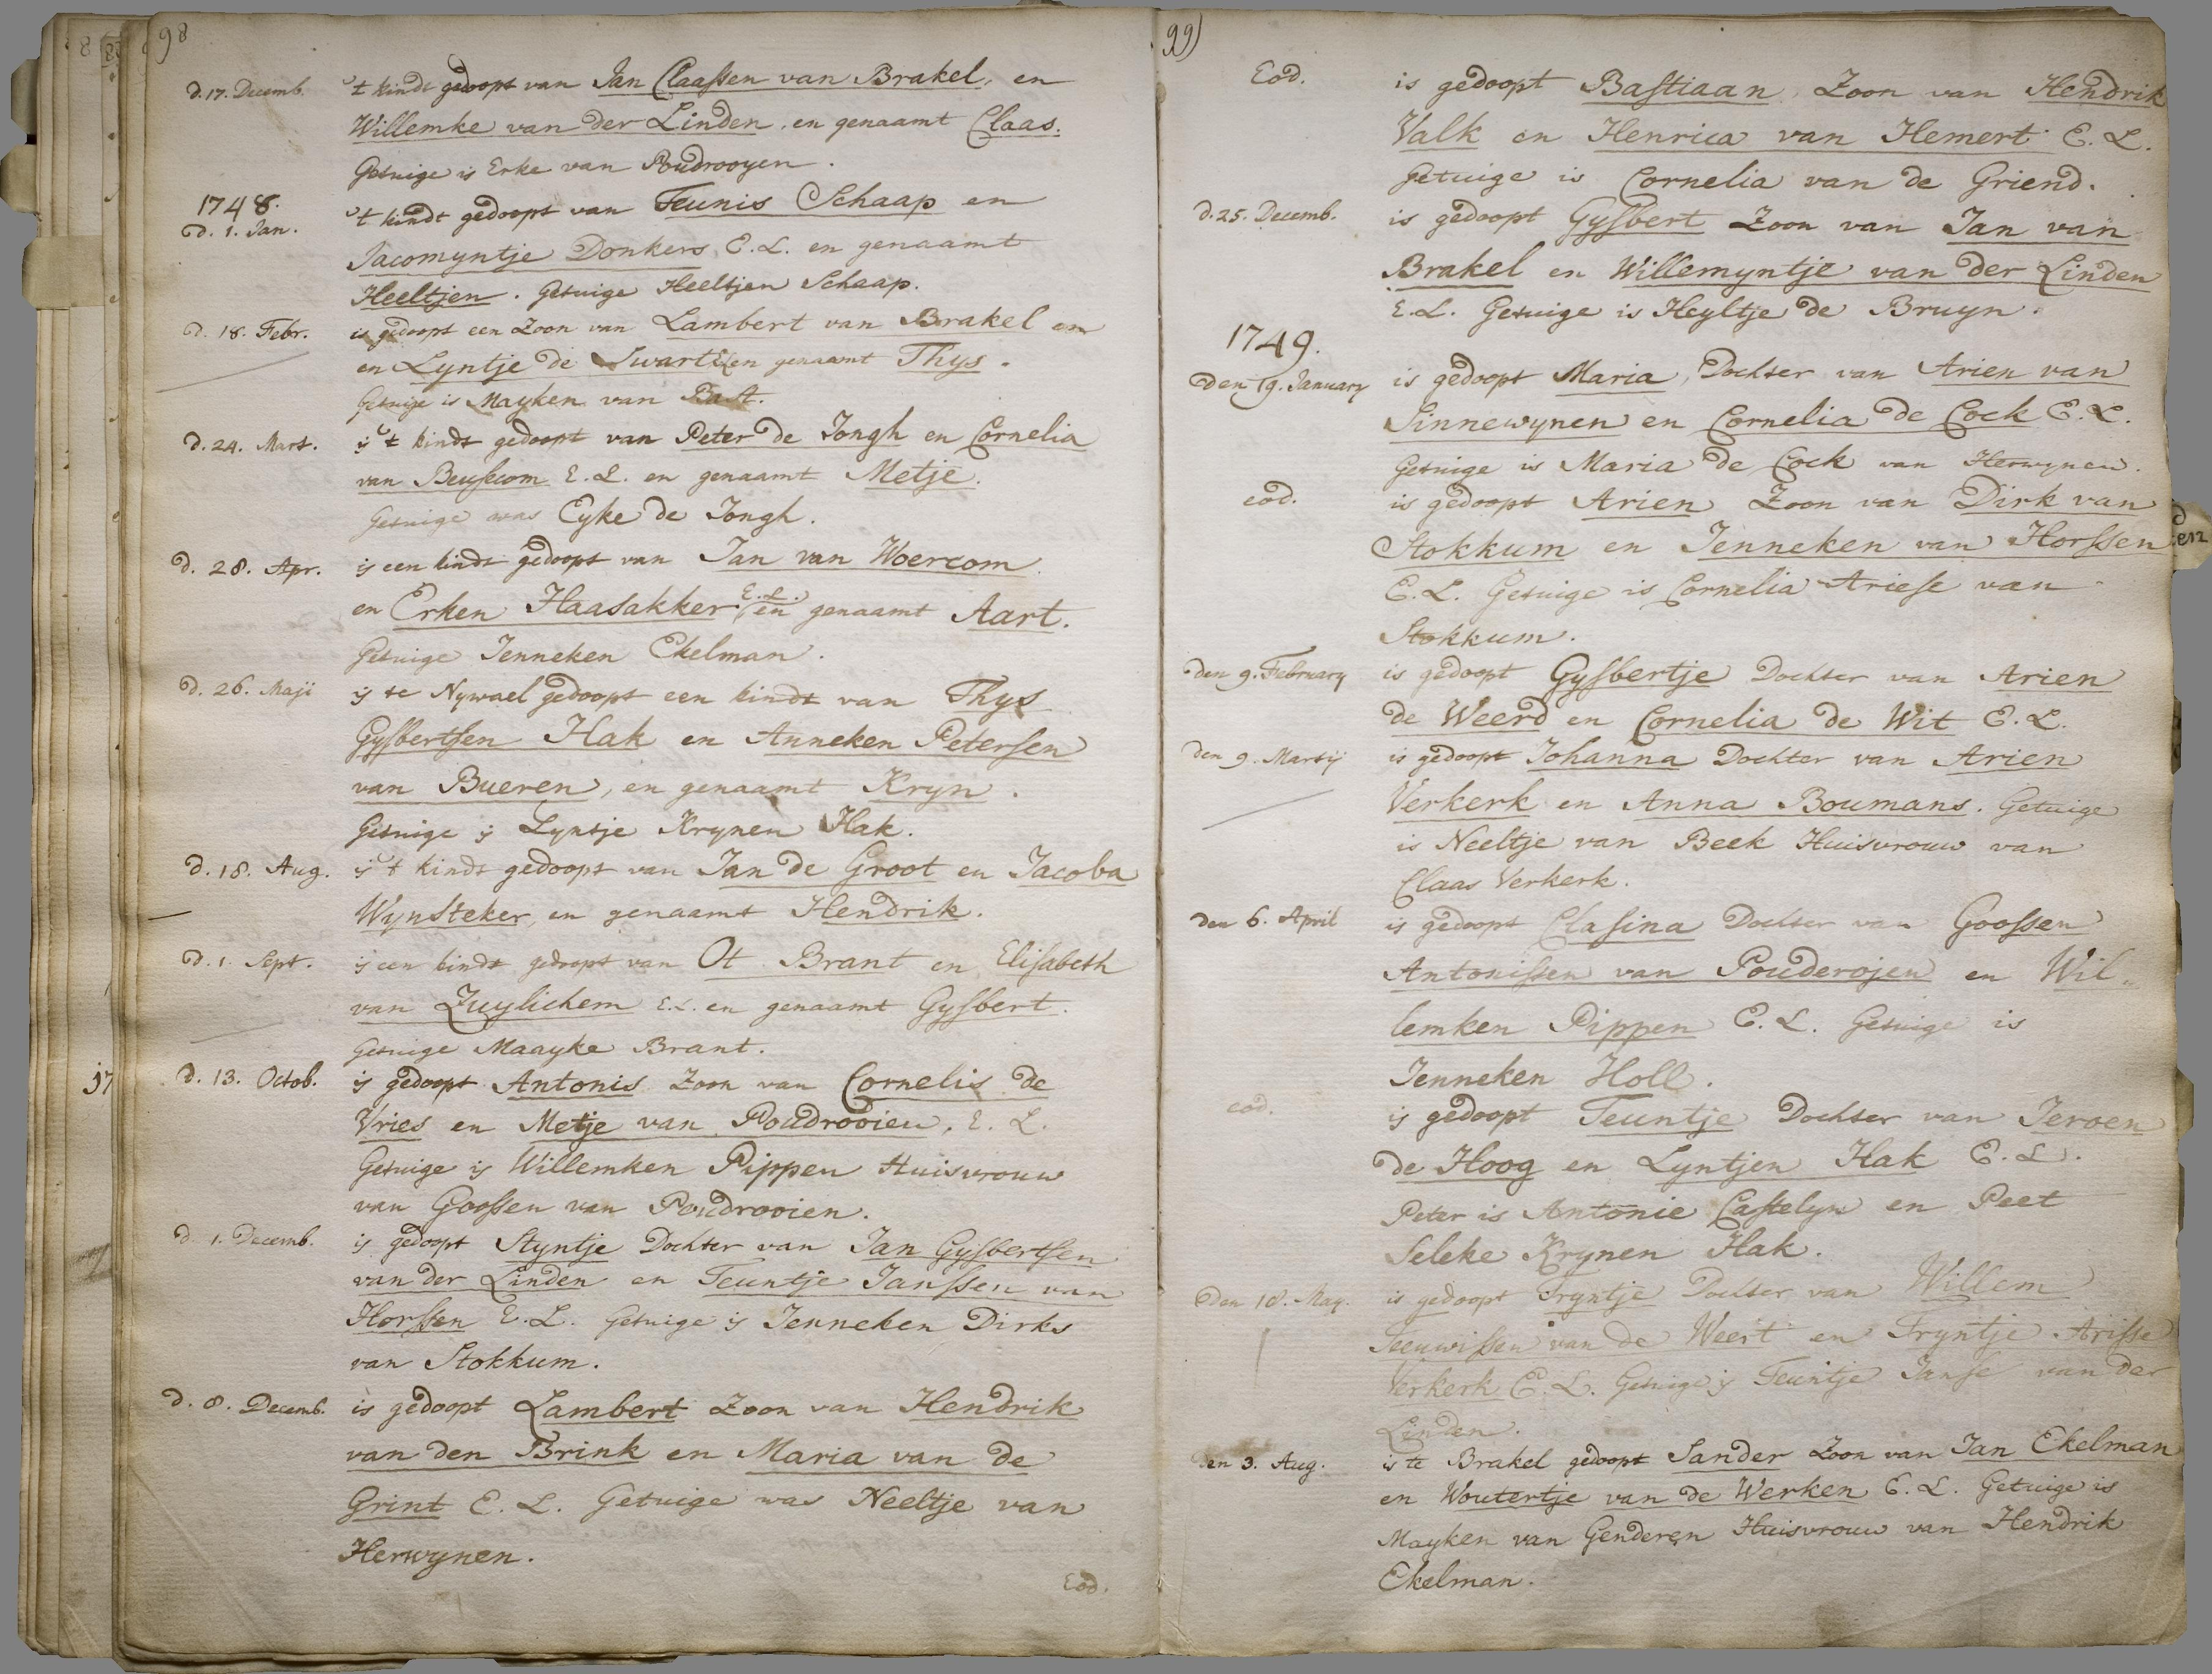 98
d. 17. Decemb. 't kindt gedoopt van Jan Claassen van Brakel, en
Willemke van der Linden, en genaamt Claas.
Getuige is Erke van Poudrooyen.
1748.
d. 1. Jan. 't kindt gedoopt van Teunis Schaap en
Jacomyntje Donkers, E.L. en genaamt
Heeltjen. Getuige Heeltjen Schaap.
d. 18. Febr. is gedoopt een Zoon van Lambert van Brakel en
en Lyntje de Swart en genaamt Thys.
Getuige is Mayken van Bast.
d. 24. Mart. is 't kindt gedoopt van Peter de Jongh en Cornelia
van Beusecom E.L. en genaamt Metje.
Getuige was Eyke de Jongh.
d. 28. Apr. is een kindt gedoopt van Jan van Woercom
en Erken Haasakker E.L. en genaamt Aart.
Getuige Jenneken Ekelman.
d. 26. Maji is te Nywael gedoopt een kindt van Thys
Gysbertsen Hak en Anneken Petersen
van Bueren, en genaamt Kryn.
Getuige is Lyntje Krynen Hak.
d. 18. Aug. is 't kindt gedoopt van Jan de Groot en Jacoba
Wynsteker, en genaamt Hendrik.
d. 1. Sept. is een kindt gedoopt van Ot Brant en Elisabeth
van Zuylichem E.L. en genaamt Gysbert.
Getuige Maayke Brant.
d. 13. Octob. is gedoopt Antonis Zoon van Cornelis de
Vries en Metje van Poudrooien, E.L.
Getuige is Willemken Pippen Huisvrouw
van Goossen van Poudrooien.
d. 1. Decemb. is gedoopt Styntje Dochter van Jan Gysbertsen
van der Linden en Teuntje Janssen van
Horssen E.L. Getuige is Jenneken Dirks
van Stokkum.
d. 8. Decemb. is gedoopt Lambert Zoon van Hendrik
van den Brink en Maria van de
Grint E.L. Getuige was Neeltje van
Herwynen.
Eod.
99)
Eod. is gedoopt Bastiaan, Zoon van Hendrik
Valk en Henrica van Hemert E.L.
Getuige is Cornelia van de Griend.
d. 25. Decemb. is gedoopt Gysbert Zoon van Jan van
Brakel en Willemyntje van der Linden
E.L. Getuige is Heyltje de Bruyn.
1749.
den 19. January is gedoopt Maria, Dochter van Arien van
Sinnewynen en Cornelia de Cock E.L.
Getuige is Maria de Cock van Herwynen.
eod. is gedoopt Arien Zoon van Dirk van
Stokkum en Jenneken van Horssen
E.L. Getuige is Cornelia Ariese van
Stokkum.
den 9. February is gedoopt Gysbertje Dochter van Arien
de Weerd en Cornelia de Wit E.L.
den 9. Martij is gedoopt Johanna Dochter van Arien
Verkerk en Anna Boumans. Getuige
is Neeltje van Beek Huisvrouw van
Claas Verkerk.
den 6. April is gedoopt Clasina Dochter van Goossen
Antonissen van Pouderojen en Wil-
lemken Pippen E.L. Getuige is
Jenneken Holl.
eod. is gedoopt Teuntje Dochter van Jeroen
de Hoog en Lyntjen Hak E.L.
Peter is Antonie Castelyn en Peet
Seleke Krynen Hak.
den 18. May. is gedoopt Tryntje Dochter van Willem
Teeuwissen van de Weert en Tryntje Arisse
Verkerk E.L. Getuige is Teuntje Janse van der
Linden.
den 3. Aug. is te Brakel gedoopt Sander Zoon van Jan Ekelman
en Woutertje van de Werken E.L. Getuige is
Mayken van Genderen Huisvrouw van Hendrik
Ekelman.